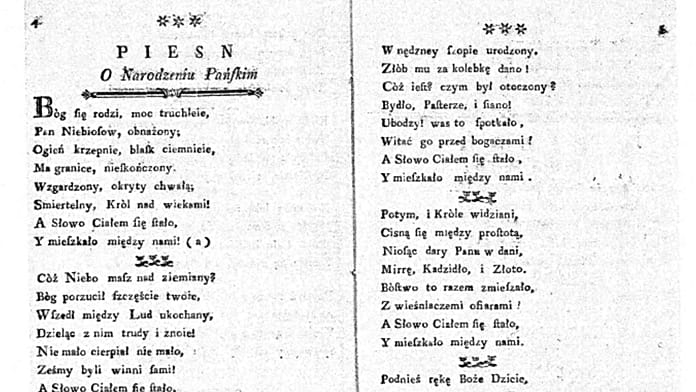 4
PIESN
O Narodzeniu Pańſkim
Bòg ſię rodzi, moc truchleie,
Pan Niebioſow, obnażony;
Ogień krzepnie, blaſk ciemnieie,
Ma granice, nieſkończony.
Wzgardzony, okryty chwałą;
Smiertelny, Kròl nad wiekami!
A Słowo Ciałem ſię ſtało,
Y mieſzkało między nami! (a)
Còż Niebo maſz nad ziemiany?
Bòg porzucił ſzczęście twoie,
Wſzedł między Lud ukochany,
Dzieląc z nim trudy i znoie!
Nie mało cierpiał nie mało,
Żeśmy byli winni ſami!
A Słowo Ciałem ſię ſtało,
W nędzney ſzopie urodzony,
Złòb mu za kolebkę dano!
Còż ieſt? czym był otoczony?
Bydło, Paſterze, i ſiano!
Ubodzy! was to ſpotkało,
Witać go przed bogaczami!
A Słowo Ciałem ſię ſtało,
Y mieſzkało między nami.
Potym, i Kròle widziani,
Ciſną ſię między proſtotą,
Nioſąc dary Panu w dani,
Mirrę, Kadzidło, i Złoto.
Bòſtwo to razem zmieſzało,
Z wieśniaczemi ofiarami!
A Słowo Ciałem ſię ſtało,
Y mieſzkało między nami.
Podnieś rękę Boże Dzicie,